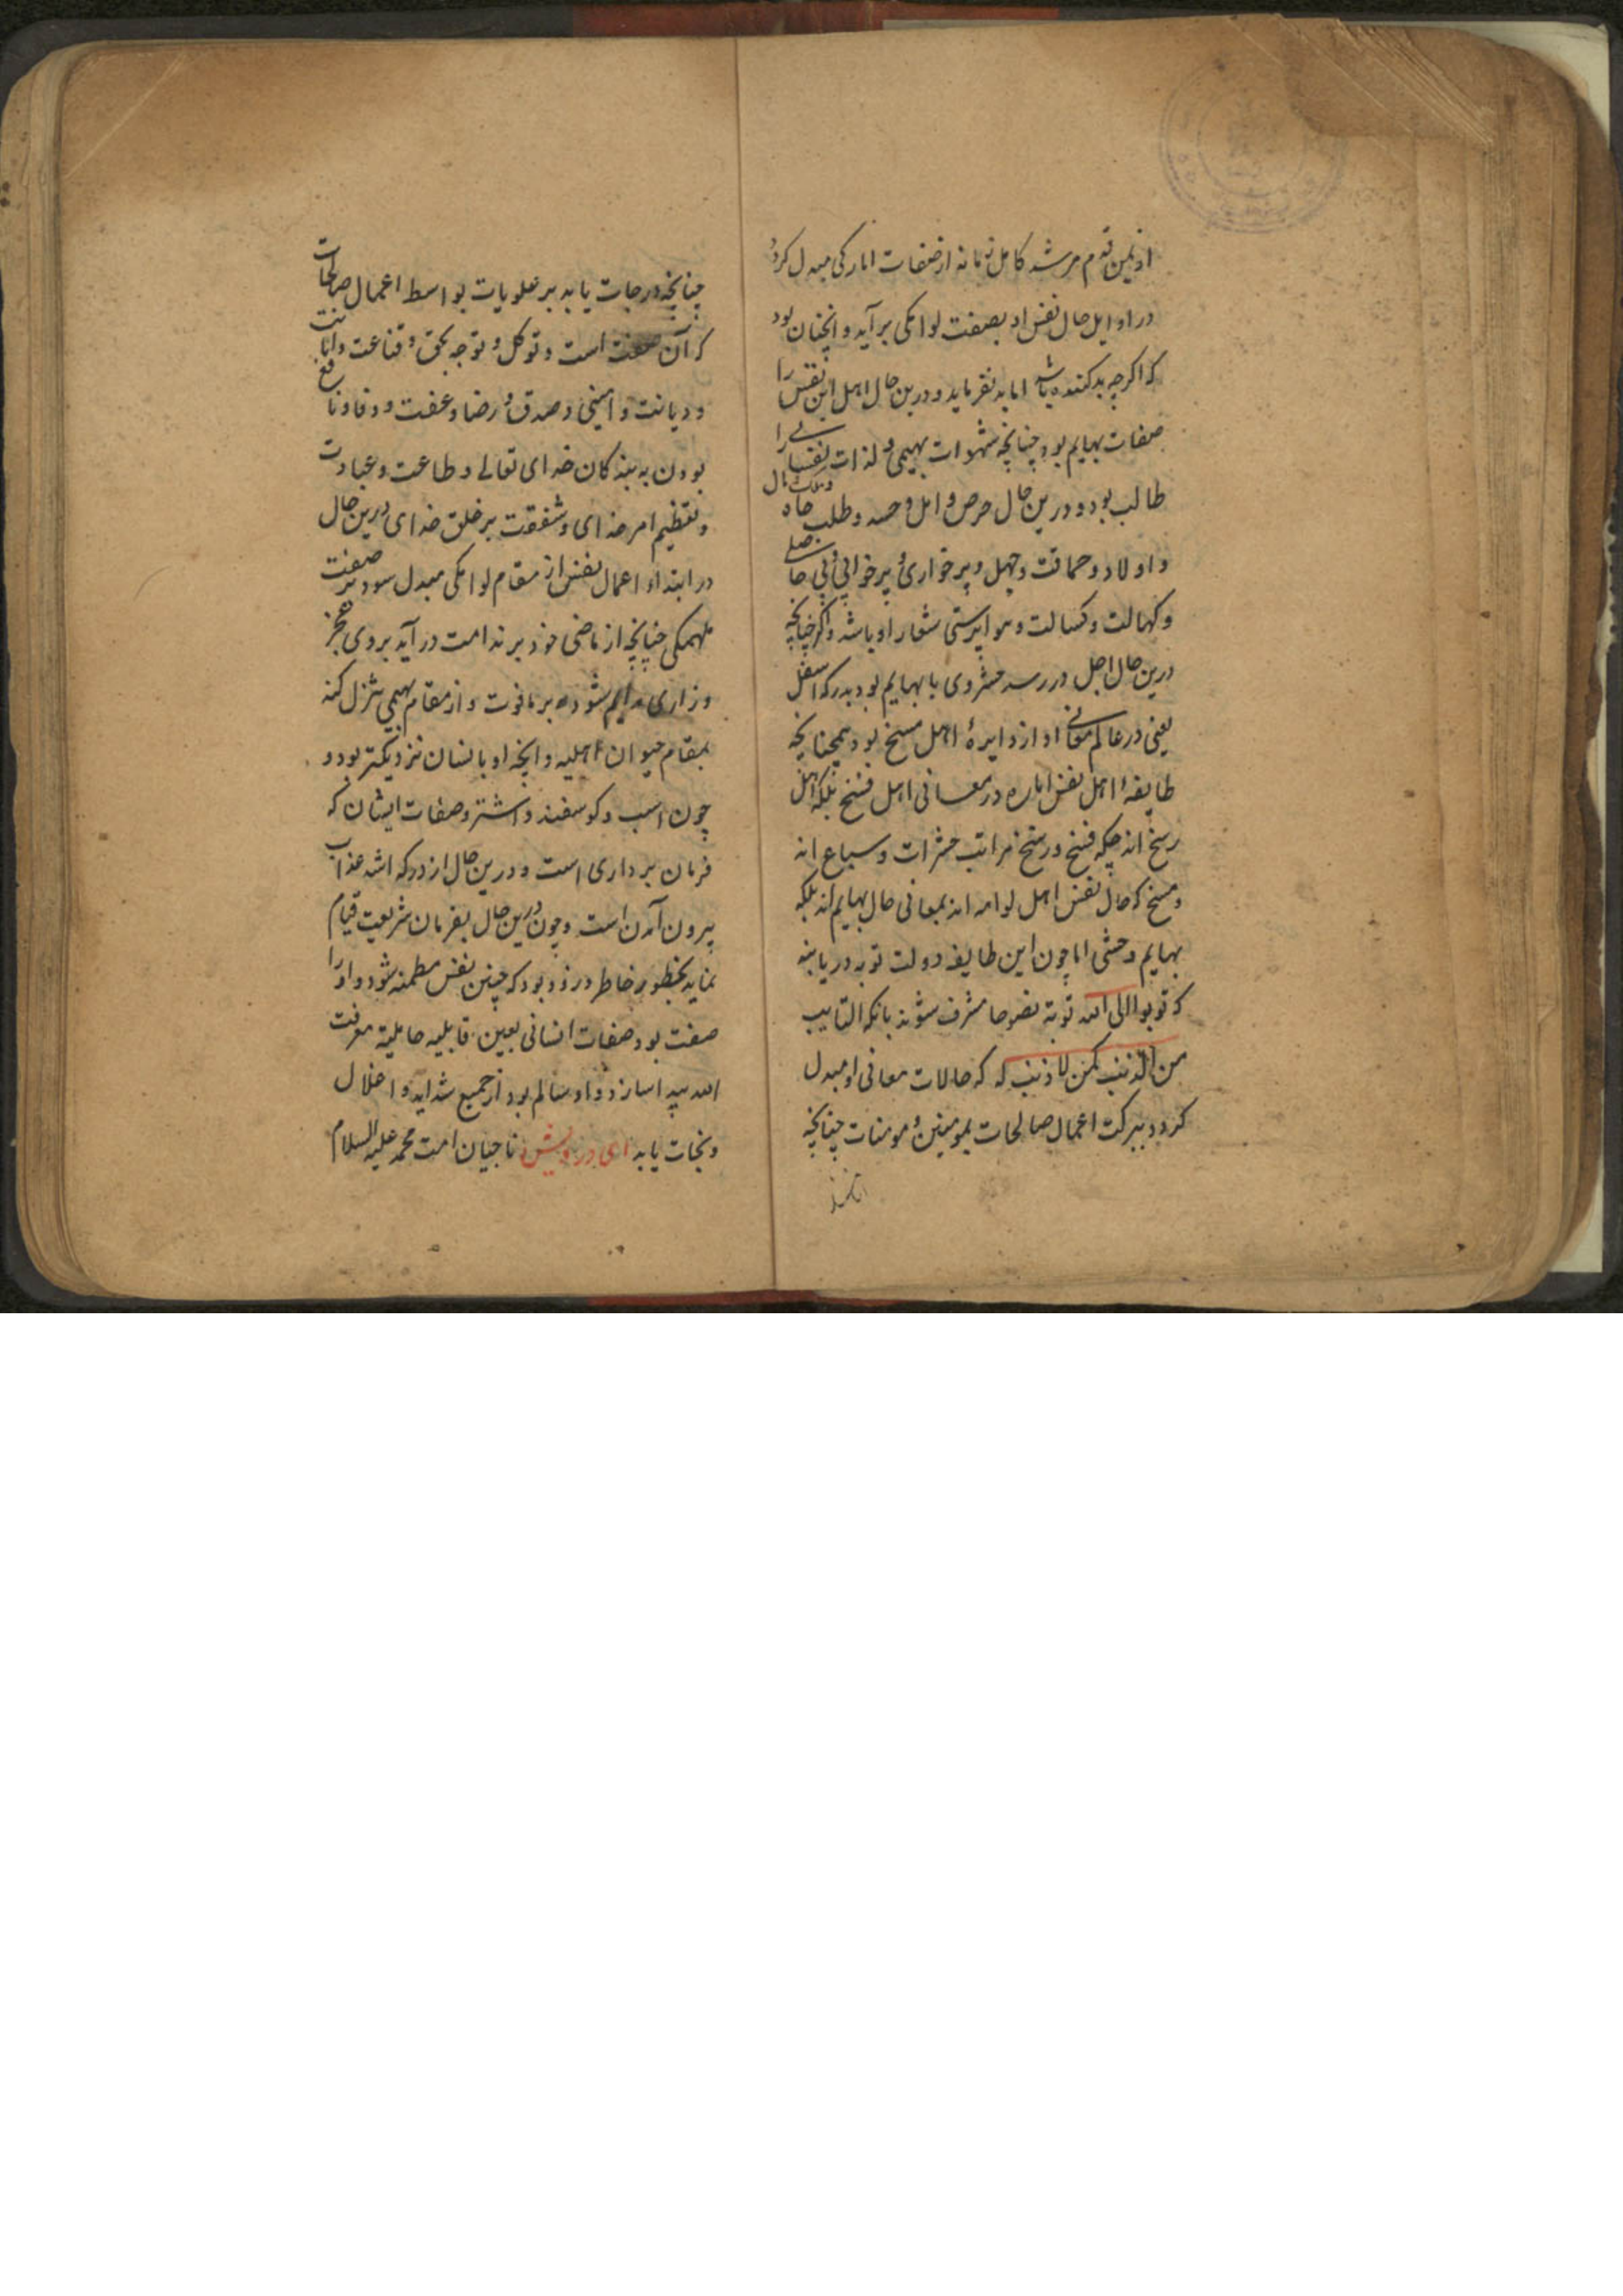 از یمن قدم مرشد کامل توبه از صفات امارکی مبدل کردد
در اوایل حال نفس او بصفت لوامکی برآید و آنچنان بود
که اکرچه بد کننده باشد اما بد نفرماید و درین حال اهل این نفس را
صفات بهایم بود چنانچه شهوات بهیمی و لذات نفسانی را
طالب بود و درین حال حرص و امل و حسد و طلب جاه و مال
و اولاد و حماقت و جهل و پرخواری و پرخوابی و بی حاصلی
و کهالت و کسالت و هواپرستی شعار او باشد و اکر چنانچه
درین حال اجل در رسد حشر وی با بهایم بود بدرکه اسفل
یعنی در عالم معانی او از دایرهٔ اهل مسخ بود همچنانچه
طایفهٔ اهل نفس اماره در معانی اهل فسخ بلکه اهل
رسخ اند چکه فسخ و رسخ مراتب حشرات و سباع اند
و مسخ که حال نفس اهل لوامه اند بمعانی حال بهایم اند بلکه
بهایم وحشی اما چون این طایفه دولت توبه دریابند
که توبوا الی الله توبة نصوحا مشرف شوند بانکه التایب
من الذنب کمن لا ذنب له که حالات معانی او مبدل
کردد ببرکت اعمال صالحات بمومنین و مومنات چنانچه
چنانچه درجات یابد بر علویات بواسط اعمال صالحات
که آن صفت است و توکل و توجه بحق و قناعت و امانت
و دیانت و امینی و صدق و رضا و عفت و وفا و نافع
بودن به بندکان خدای تعالی و طاعت و عبادت
و تعظیم امر خدای و شفقت بر خلق خدای درین حال
در ابتداء اعمال نفس از مقام لوامکی مبدل سود بر صفت
ملهمکی چنانچه از ماضی خود بر ندامت درآید بروی عجز
و زاری دایم شود بر مافوت و از مقام بهیمی تنزل کند
بمقام حیوان اهلیه و آنچه او بانسان نزدیکتر بود و
چون اسب و کوسفند و اشتر و صفات ایشان که
فرمان برداری است و درین حال از درکه اشد عذاب
بیرون آمدن است و چون درین حال بفرمان شریعت قیام
نماید بخطور خاطر در زود بود که چنین نفس مطمنه شود و او را
صفت بود صفات انسانی بعین قابلیه حاملیة معرفت
الله پیدا سازد و او سالم بود از جمیع شداید و اغلال
و نجات یابد ای درویش ناجیان امت محمد علیه السلام